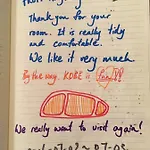 Thank you for your
room. It is really tidy
and comfortable.
We like it very much
By the way. KOBE is
We really want to visit again!